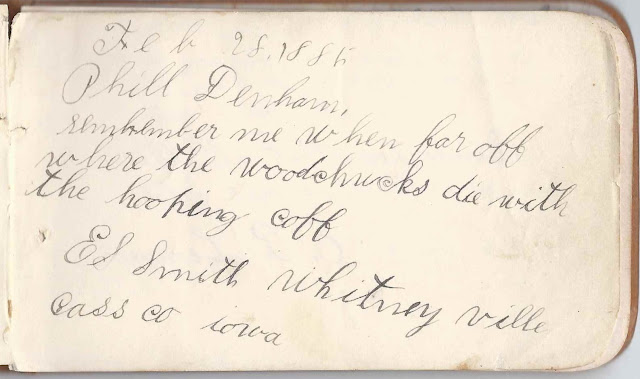 Feb 28, 1885
Phill Denham,
remember me when far off
where the woodchucks die with
the hooping coff
Ed Smith Whitney ville
Cass co iowa